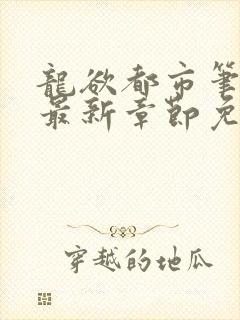 龍欲都市筆
最新章節免
穿越的地瓜